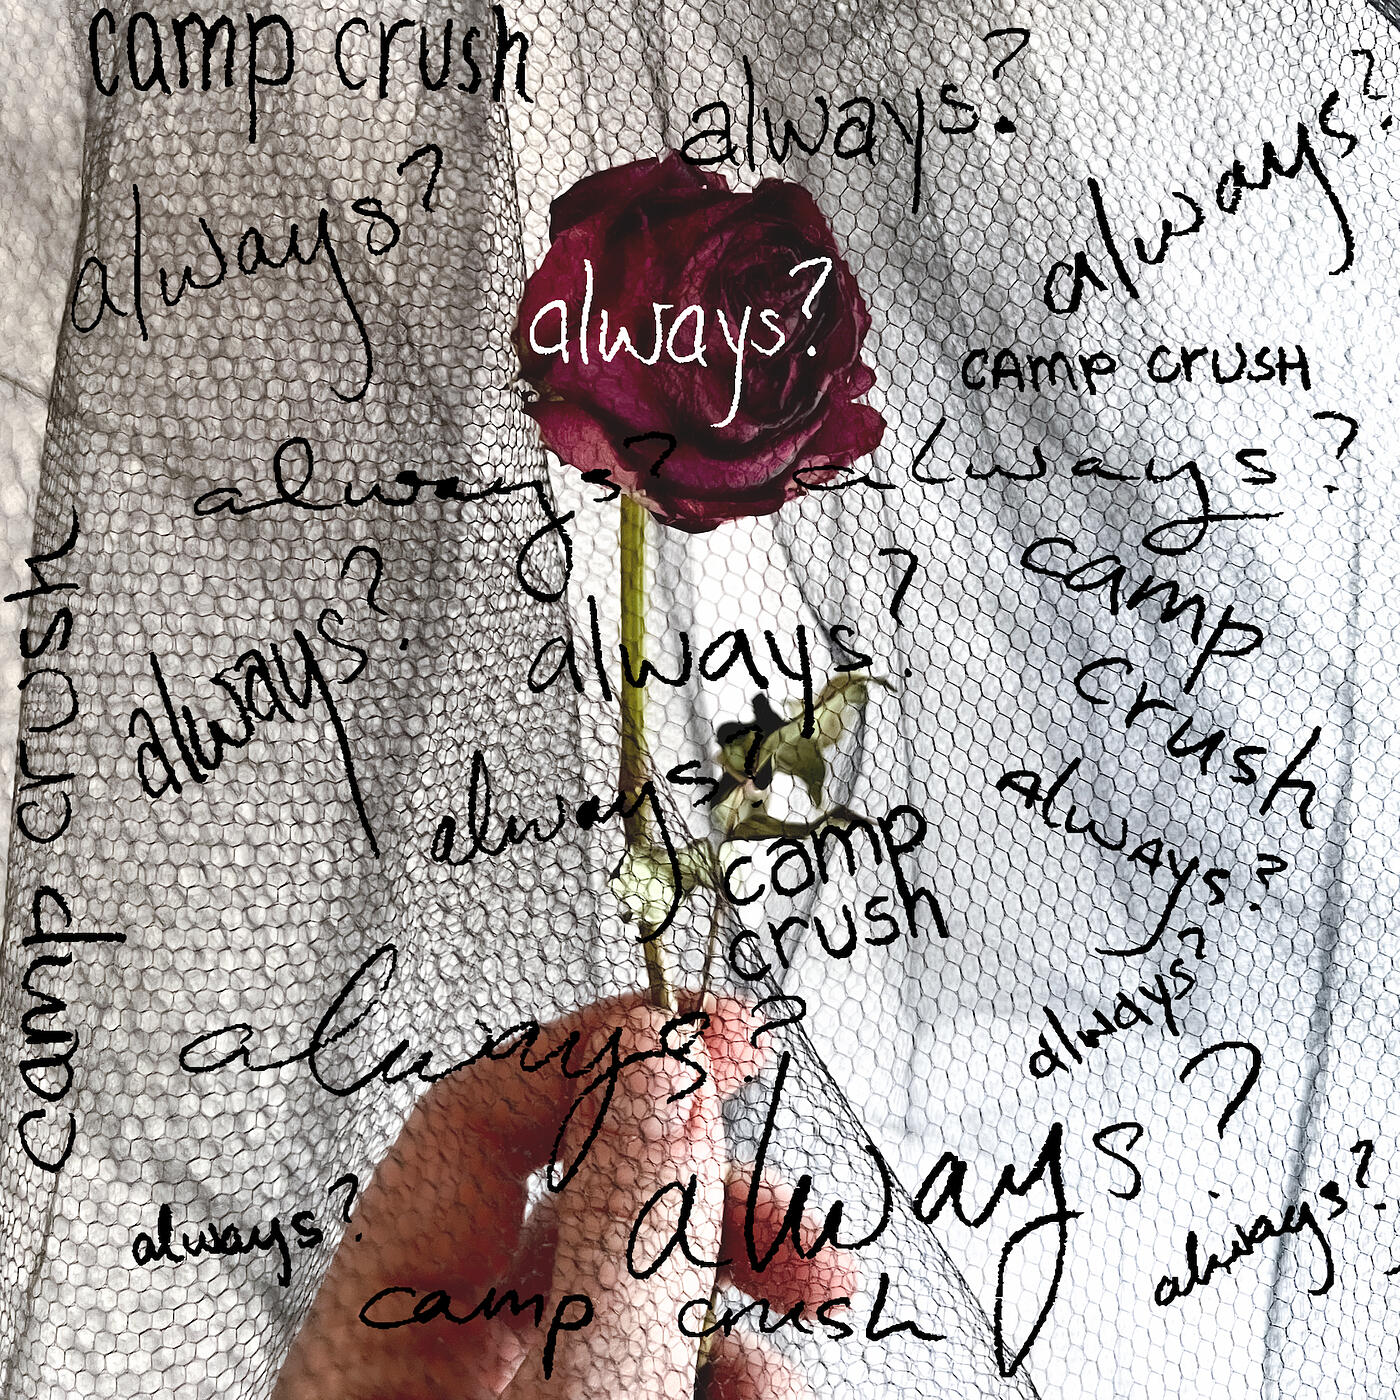 camp crush
always?
always?
always?
always?
CAMP CRUSH
always?
always?
camp
crush
always?
always?
camp crush
always?
always?
camp
crush
always?
always?
always?
always?
always?
camp crush